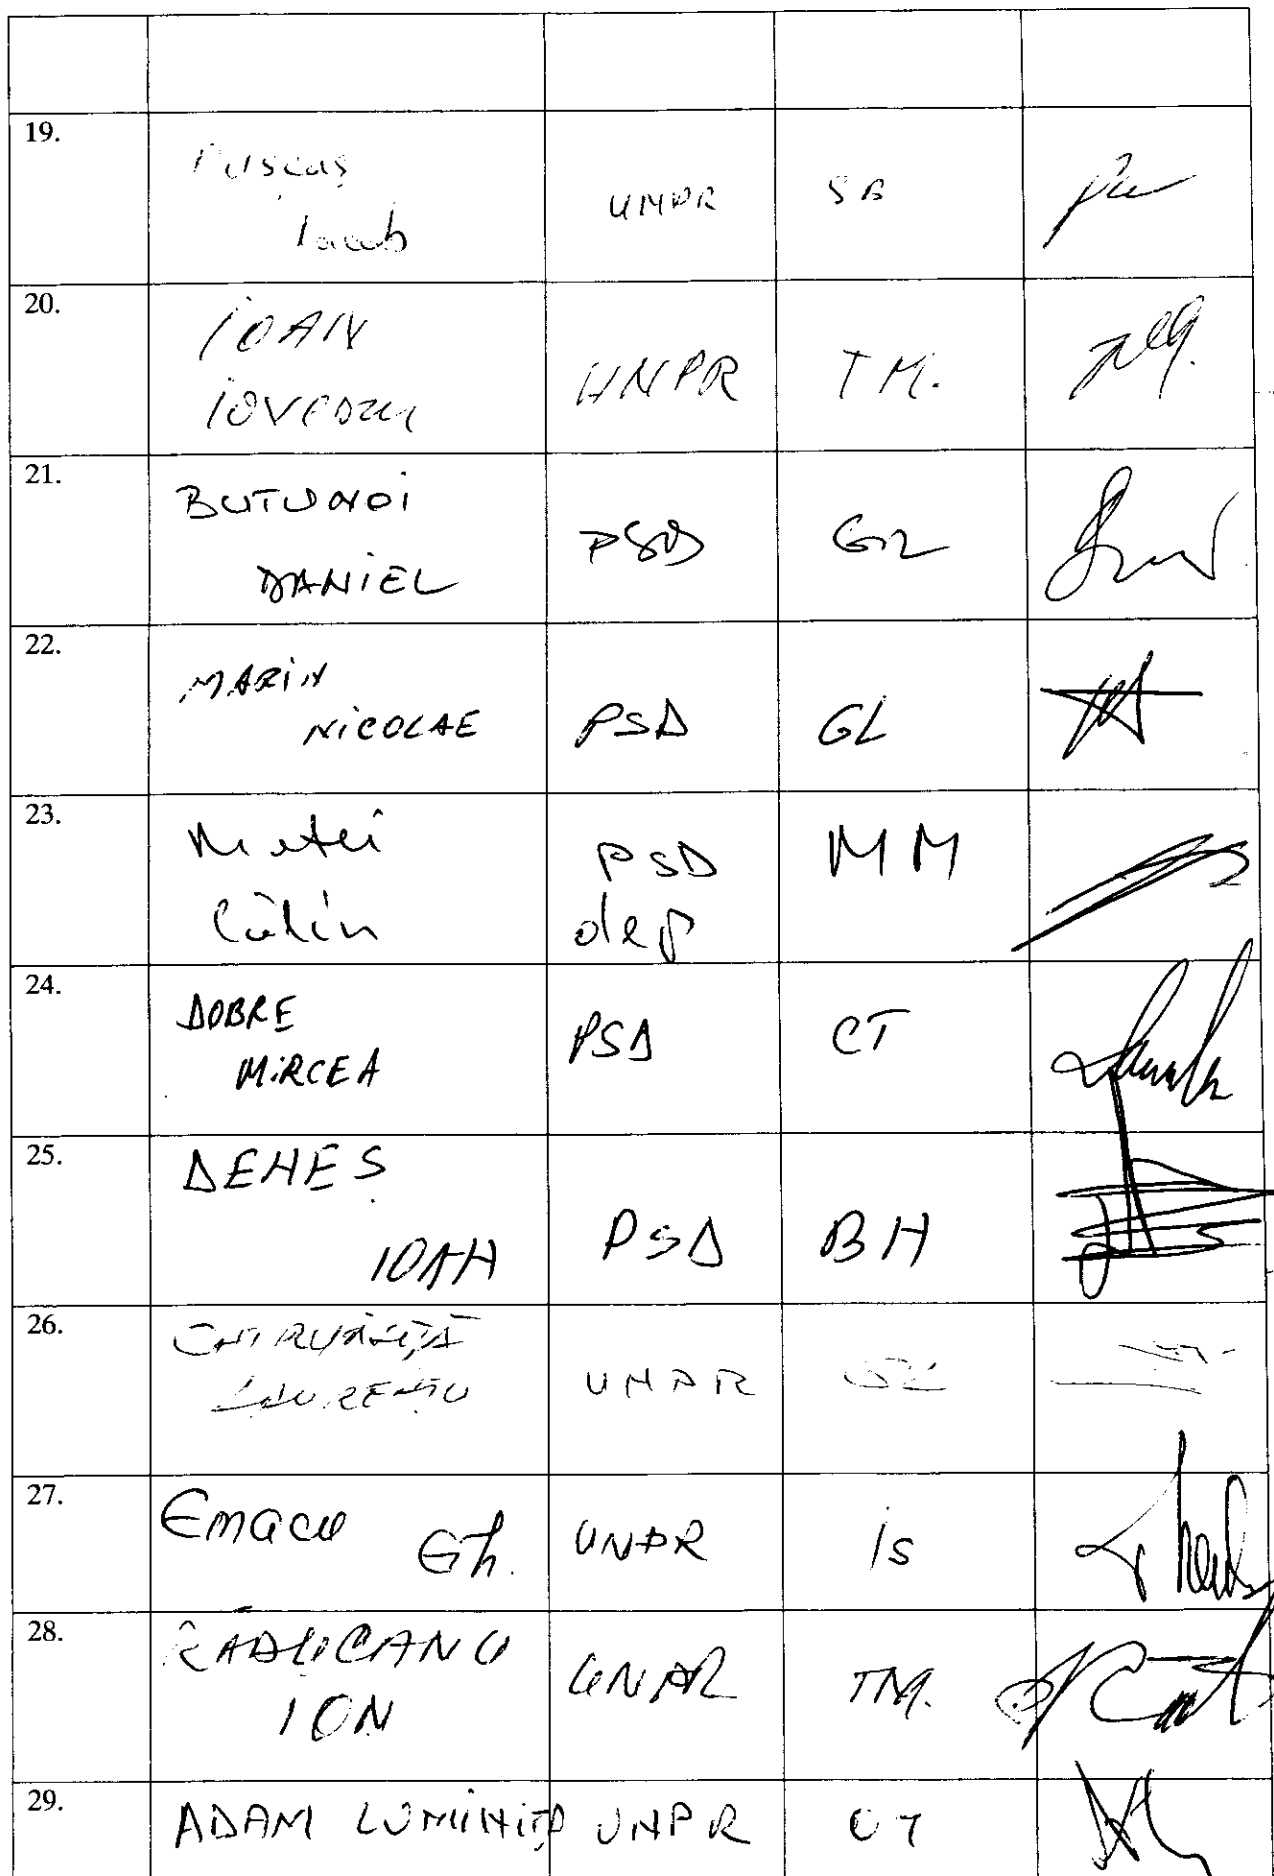 19. Pușcaș Iacob UNPR SB
20. IOAN UNPR TM.
21. BUTUNOI DANIEL PSD GR
22. MARIN NICOLAE PSD GL
23. Matei Călin PSD dep MM
24. DOBRE MIRCEA PSD CT
25. DENEȘ IOAN PSD BH
26. CHIRUȚĂ LAURENȚIU UNPR
27. Emacu Gh. UNPR IS
28. RĂDUCANU ION UNPR TM.
29. ADAM LUMINIȚA UNPR OT